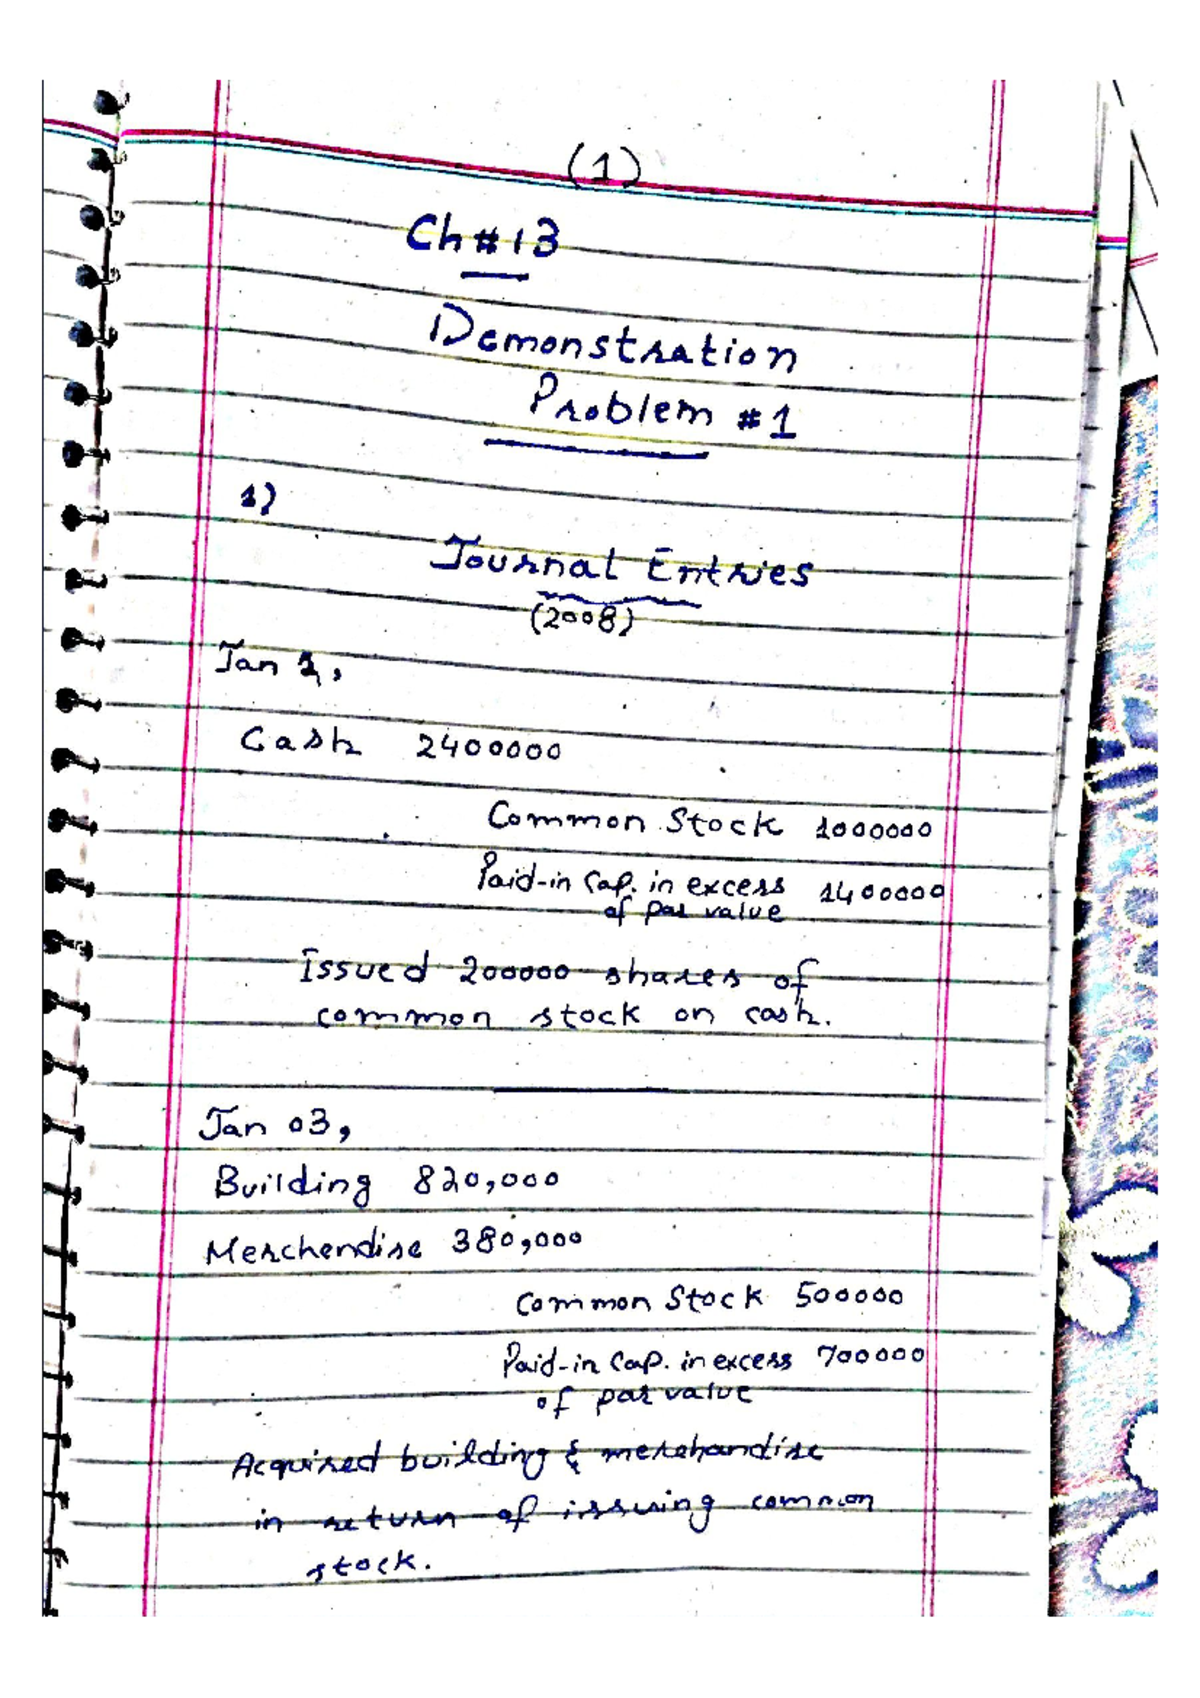 (1)
Ch # 13
Demonstration
Problem #1
1)
Journal Entries
(2008)
Jan 2,
Cash 2400000
Common Stock 1000000
Paid-in Cap. in excess 1400000
of par value
Issued 200000 shares of
common stock on cash.
Jan 03,
Building 820,000
Merchendise 380,000
Common Stock 500000
Paid-in Cap. in excess 700000
of par value
Acquired building & merchandise
in return of issuing common
stock.